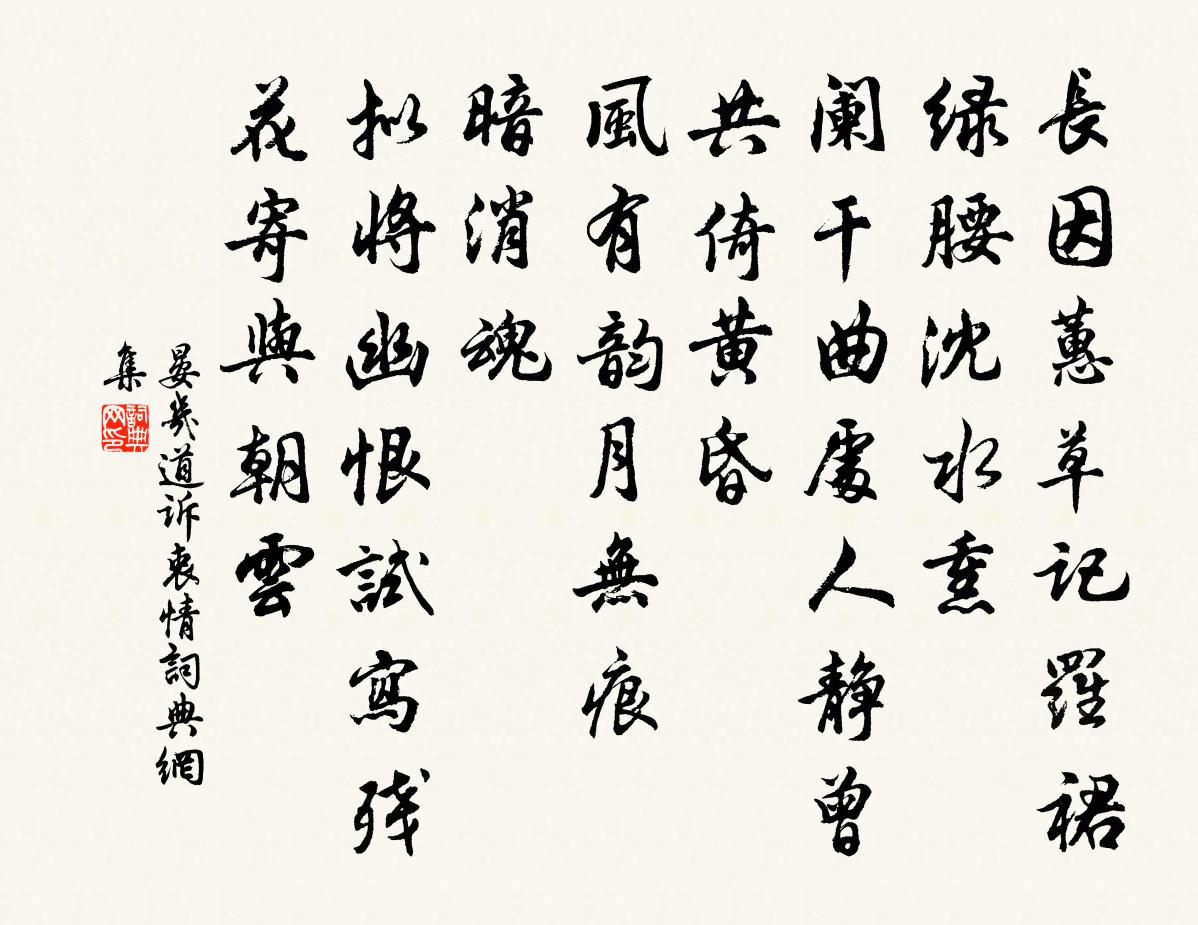 長因蕙草記羅裙
绿腰沈水熏
阑干曲處人静曾
共倚黄昏
風有韵月無痕
暗消魂
拟將幽恨試寫残
花寄與朝雲
晏幾道訴衷情詞典網
集
詞典网印